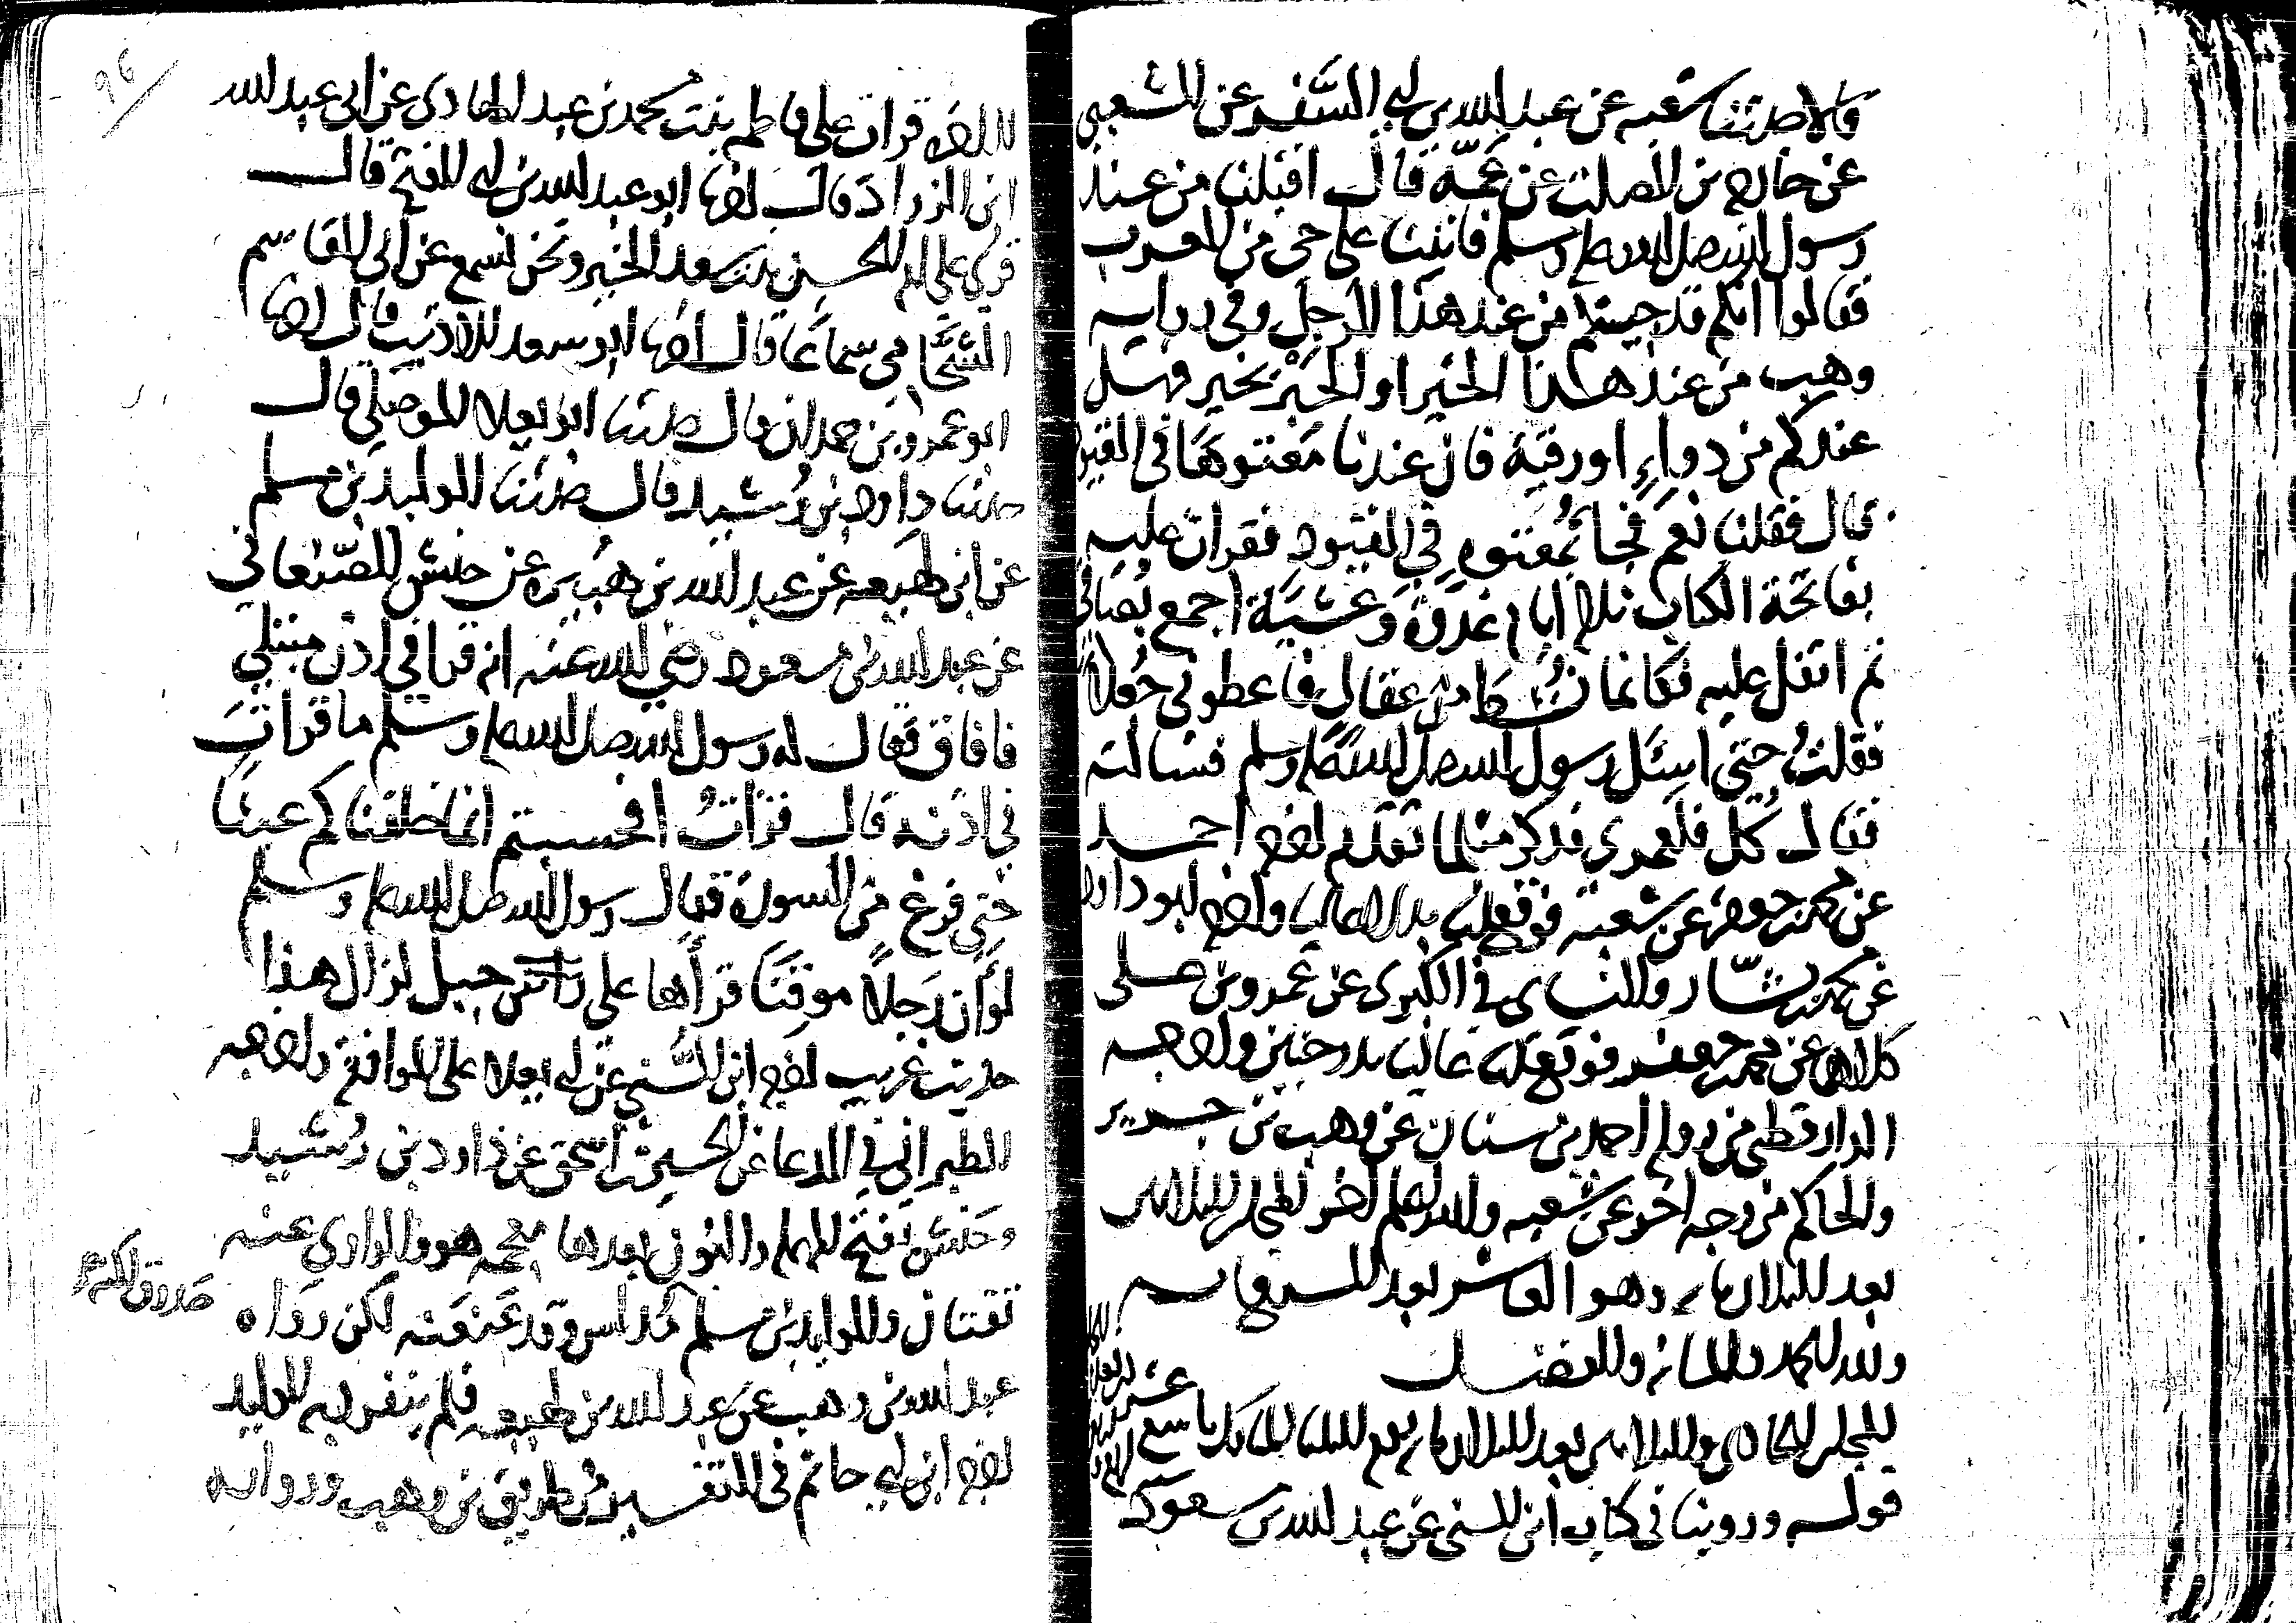 قالا حدثنا شعبه عن عبد الله بن ابي السفر عن الشعبي
عن خارجة بن الصلت عن عمه قال اقبلنا من عند
رسول الله صلى الله عليه وسلم فاتينا على حي من العرب
فقالوا انكم قد جيتم من عند هذا الرجل وفي رواية
وهب من عند هذا الخير او الحبر بخير فهل
عندكم من دواء او رقية فان عندنا معتوها في القيود
قال فقلنا نعم فجاءوا بمعتوه في القيود فقرات عليه
بفاتحة الكتاب ثلاثة ايام غدوة وعشية اجمع بصاقي
ثم اتفل عليه فكانما نشط من عقال فاعطوني جعلا
فقلت حتى اسئل رسول الله صلى الله عليه وسلم فسالته
فقال كل فلعمري فذكر مثل ما تقدم اخرجه احمد
عن محمد بن جعفر عن شعبة فوقع لنا بدلا عاليا واخرجه ابو داود
عن محمد بن بشار والنساي في الكبرى عن عمرو بن علي
كلاهما عن محمد بن جعفر فوقع لنا عاليا بدرجتين واخرجه
الدارقطني من رواية احمد بن سنان عن وهب بن جرير
والحاكم من وجه اخر عن شعبه والله اعلم اخر المجلس الثلاثين
بعد الثلاثمايه وهو العاشر بعد السبعمايه
ولله الحمد والمنه والفضل
المجلس الحادي والثلاثين بعد الثلاثمايه يوم الثلثا تاسع عشر
قوله وروينا في كتاب ابن السني عن عبد الله بن مسعود
96
اخبرني قرات على فاطمة بنت محمد بن عبد الهادي عن ابي عبد الله
ابن الزراد قال اخبرنا ابو عبد الله بن ابي الفتح قال
قري على ام الحسين بنت سعد الخير ونحن نسمع عن ابي القاسم
الشحامي سماعا قال اخبرنا ابو سعد الاديب قال اخبرنا
ابو عمرو بن حمدان قال حدثنا ابو يعلا الموصلي قال
حدثنا داود بن رشيد قال حدثنا الوليد بن مسلم
عن ابن لهيعه عن عبد الله بن هبيره عن حنش الصنعاني
عن عبد الله بن مسعود رضي الله عنه انه قرا في اذن مبتلي
فافاق فقال له رسول الله صلى الله عليه وسلم ما قرات
في اذنه قال قرات افحسبتم انما خلقناكم عبثا
حتى فرغ من السورة فقال رسول الله صلى الله عليه وسلم
لو ان رجلا موقنا قراها على جبل لزال هذا
حديث غريب اخرجه ابن السني عن ابي يعلا على الموافقة واخرجه
الطبراني في الدعا عن الحسين بن اسحق عن داود بن رشيد
وحنش بفتح المهملة والنون بعدها معجمه هو والراوي عنه
ثقتان والوليد بن مسلم مدلس وقد عنعنه لكن رواه
عبد الله بن وهب عن عبد الله بن لهيعه فلم ينفرد به الوليد
اخرجه ابن ابي حاتم في التفسير من طريق بن وهب ورواته